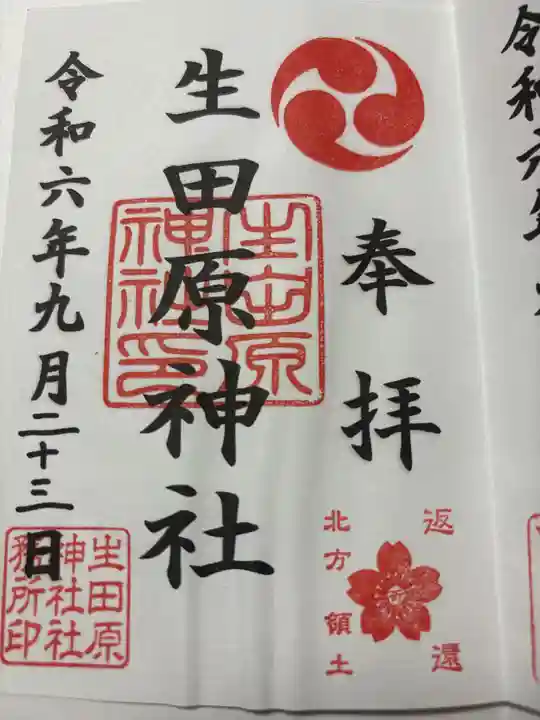 奉拝
返還
北方領土
生田原神社
生田原
神社印
令和六年九月二十三日
生田原
神社社
務所印
令和六年